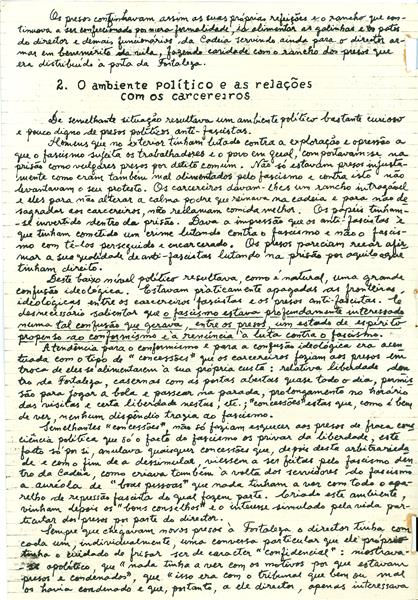 Os presos confinhavam assim as suas próprias refeições e o rancho que con-
tinuava a ser confeccionado por mera formalidade, ia alimentar as galinhas e os patos
do director e demais funcionários da Cadeia servindo ainda para o director ar-
mar em benemérito da vila, fazendo caridade com o rancho dos presos que
era distribuído à porta da Fortaleza.
2. O ambiente político e as relações
com os carcereiros
De semelhante situação resultava um ambiente político bastante curioso
e pouco digno de presos políticos anti-fascistas.
Homens que no exterior tinham lutado contra a exploração e opressão a
que o fascismo sujeita os trabalhadores e o povo em geral, comportavam-se na
prisão como vulgares presos por delito comum. Não só estavam presos injusta-
mente como eram também mal alimentados pelo fascismo e contra isto não
levantavam o seu protesto. Os carcereiros davam-lhes um rancho intragável
e eles para não alterar a calma podre que reinava na cadeia e para não de-
sagradar aos carcereiros, não reclamam comida melhor. Os papeis tinham-
-se invertido dentro da prisão. Dava a impressão que os anti-fascistas é
que tinham cometido um crime lutando contra o fascismo e não o fascis-
mo com tê-los perseguido e encarcerado. Os presos pareciam recear afir-
mar a sua qualidade de anti-fascistas lutando na prisão por aquilo a que
tinham direito.
Deste baixo nível político resultava, como é natural, uma grande
confusão ideológica. Estavam praticamente apagadas as fronteiras
ideológicas entre os carcereiros fascistas e os presos anti-fascistas. É
desnecessário salientar que o fascismo estava profundamente interessado
numa tal confusão que gerava, entre os presos, um estado de espírito
propenso ao conformismo e à renúncia à luta contra o fascismo.
A tendência para o conformismo e para a confusão ideológica era acen-
tuada com o tipo de "concessões" que os carcereiros faziam aos presos em
troca de eles se alimentarem à sua própria custa: relativa liberdade den-
tro da Fortaleza, casernas com as portas abertas quase todo o dia, permis
são para jogar a bola e passear na parada, prolongamento no horário
das visitas e certa liberdade nestas, etc.; "concessões" estas que, como é bem
de ver, nenhum dispêndio trazia ao fascismo.
Semelhantes "concessões", não só faziam esquecer aos presos de fraca cons
ciência política que só o facto do fascismo os privar da liberdade, este
facto só por si, anulava quaisquer concessões que, depois desta arbitrarieda-
de e com o fim de a dissimular, viessem a ser feitas pelo fascismo den-
tro da Cadeia, como criava também à volta dos servidores do fascismo
a auréola de "boas pessoas" que nada tinham a ver com todo o apa-
relho de repressão fascista do qual fazem parte. Criado este ambiente,
vinham depois os "bons conselhos" e o interesse simulado pela vida par-
ticular dos presos por parte do director.
Sempre que chegavam novos presos à Fortaleza o director tinha com
cada um, individualmente, uma conversa particular que ele próprio
tinha o cuidado de frisar ser de carácter "confidencial": mostrava-
se apolítico, que "nada tinha a ver com os motivos por que estavam
presos e condenados", que "isso era com o tribunal que bem ou mal
os havia condenado e que, portanto, a ele director, apenas interessava